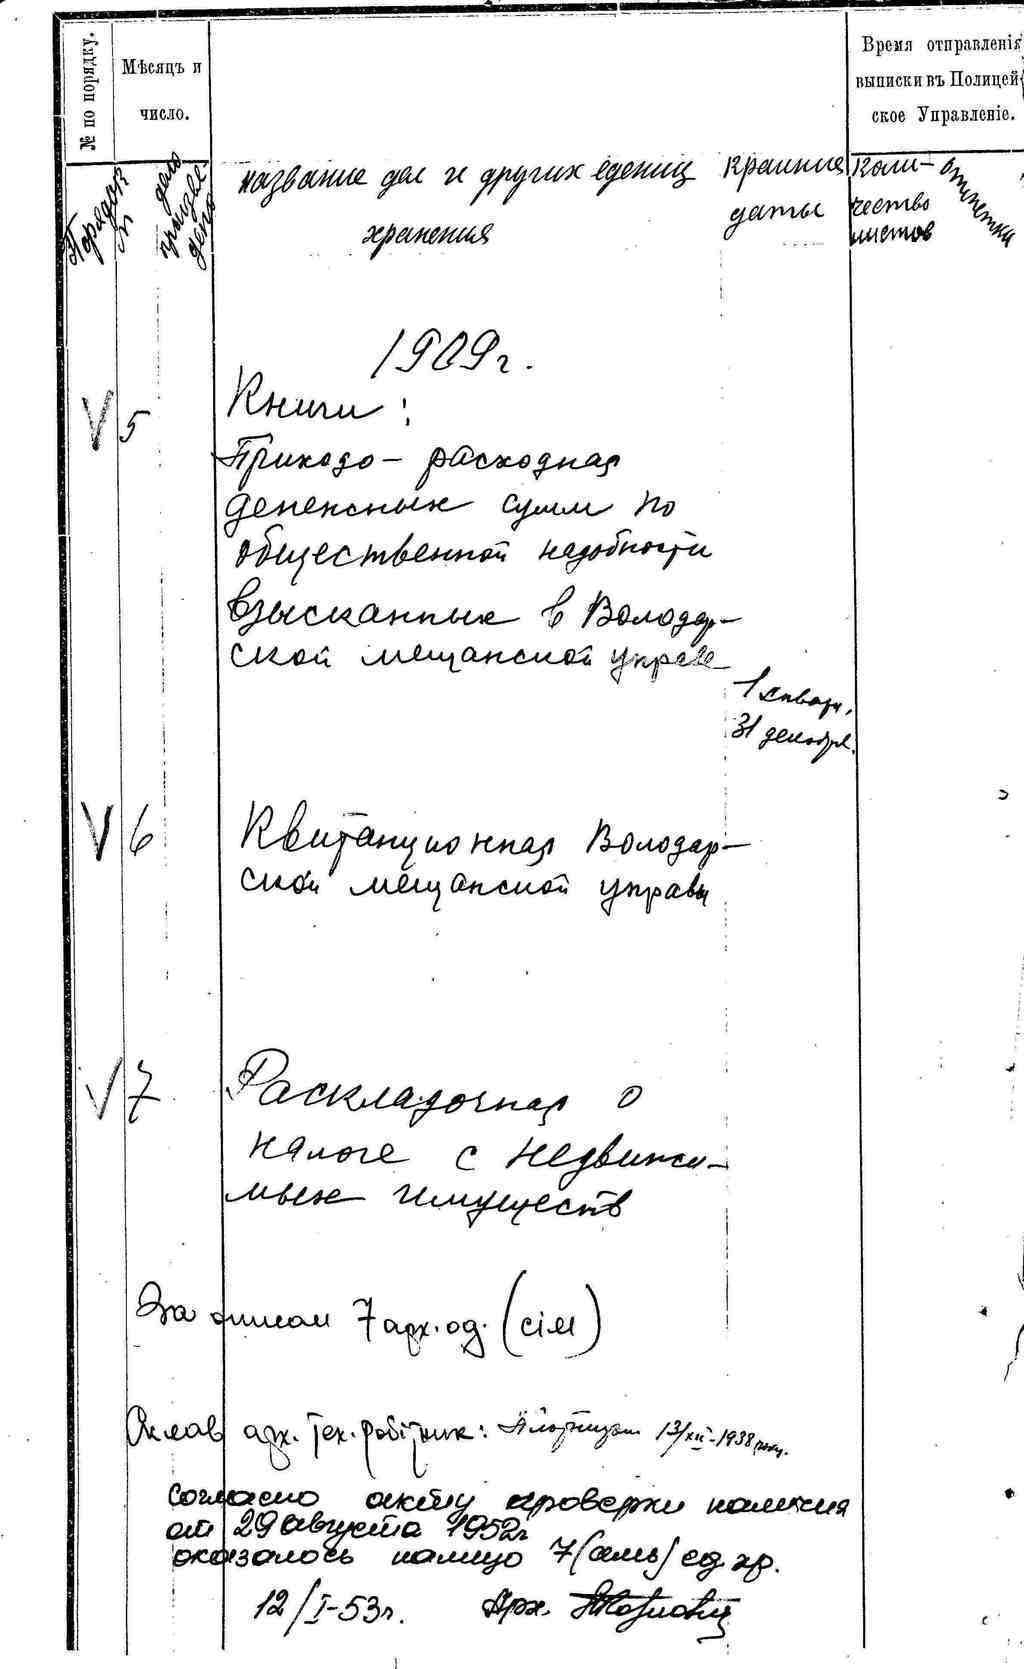 № по порядку.
Мѣсяцъ и
число.
Время отправленія
выписки въ Полицей-
ское Управленіе.
Порядок
№
дело
произве-
дено
название дел и других едениц
хранения
крайние
даты
Коли-
чество
листов
отметки
1909 г.
V 5 Книги:
Приходо-расходная
денежных сумм по
общественной надобности
взысканных в Володар-
ской мещанской управе
1 января,
31 декабря.
V 6 Квитанционная Володар-
ской мещанской управы
V 7 Раскладочная о
налоге с недвижи-
мых имуществ
За описом 7 арх. од. (сім)
Склав арх. тех. робітник: 13/XII-1938 року.
Согласно акту проверки наличия
от 29 августа 1952 г
оказалось налицо 7 (семь) ед. хр.
12/I-53 г. Арх.